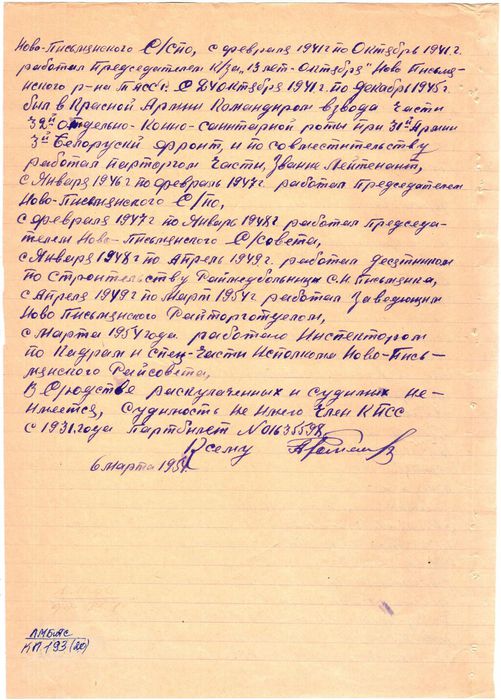 Ново-Письмянского С/спо, с февраля 1941г по Октябрь 1941.г.
работал Председателем К/за "13 лет-Октября" Ново Письмя-
нского р-на ТАССР: С 24 Октября 1941г. по декабрь 1945г.
был в Красной Армии Командиром взвода части
32й Отдельно-Конно-санитарной роты при 31й Армии
3й Белоруский фронт, и по совместительству
работал парторгом части, Звание Лейтенант,
с Января 1946г по февраль 1947г. работал Председателем
Ново-Письмянского С/по,
с февраля 1947г по Январь 1948г работал Председа-
телем Ново-Письмянского С/совета,
с Января 1948г по Апрель 1949г. работал десятником
по Строительству Раймедбольницы с.Н. Письмянка,
с Апреля 1949г по Март 1954г работал Заведующим
Ново Письмянского Райторготделом,
с Марта 1954года работаю Инспектором
по Кадрам и спец-части Исполкома Ново-Пись-
мянского Райсовета,
В Сродстве раскулаченных и судимых не-
имеется, Судимость не имею Член КПСС
с 1931.года Партбилет №01635598
К сему
6 марта 195
ЛМБ
КП 193 (20)